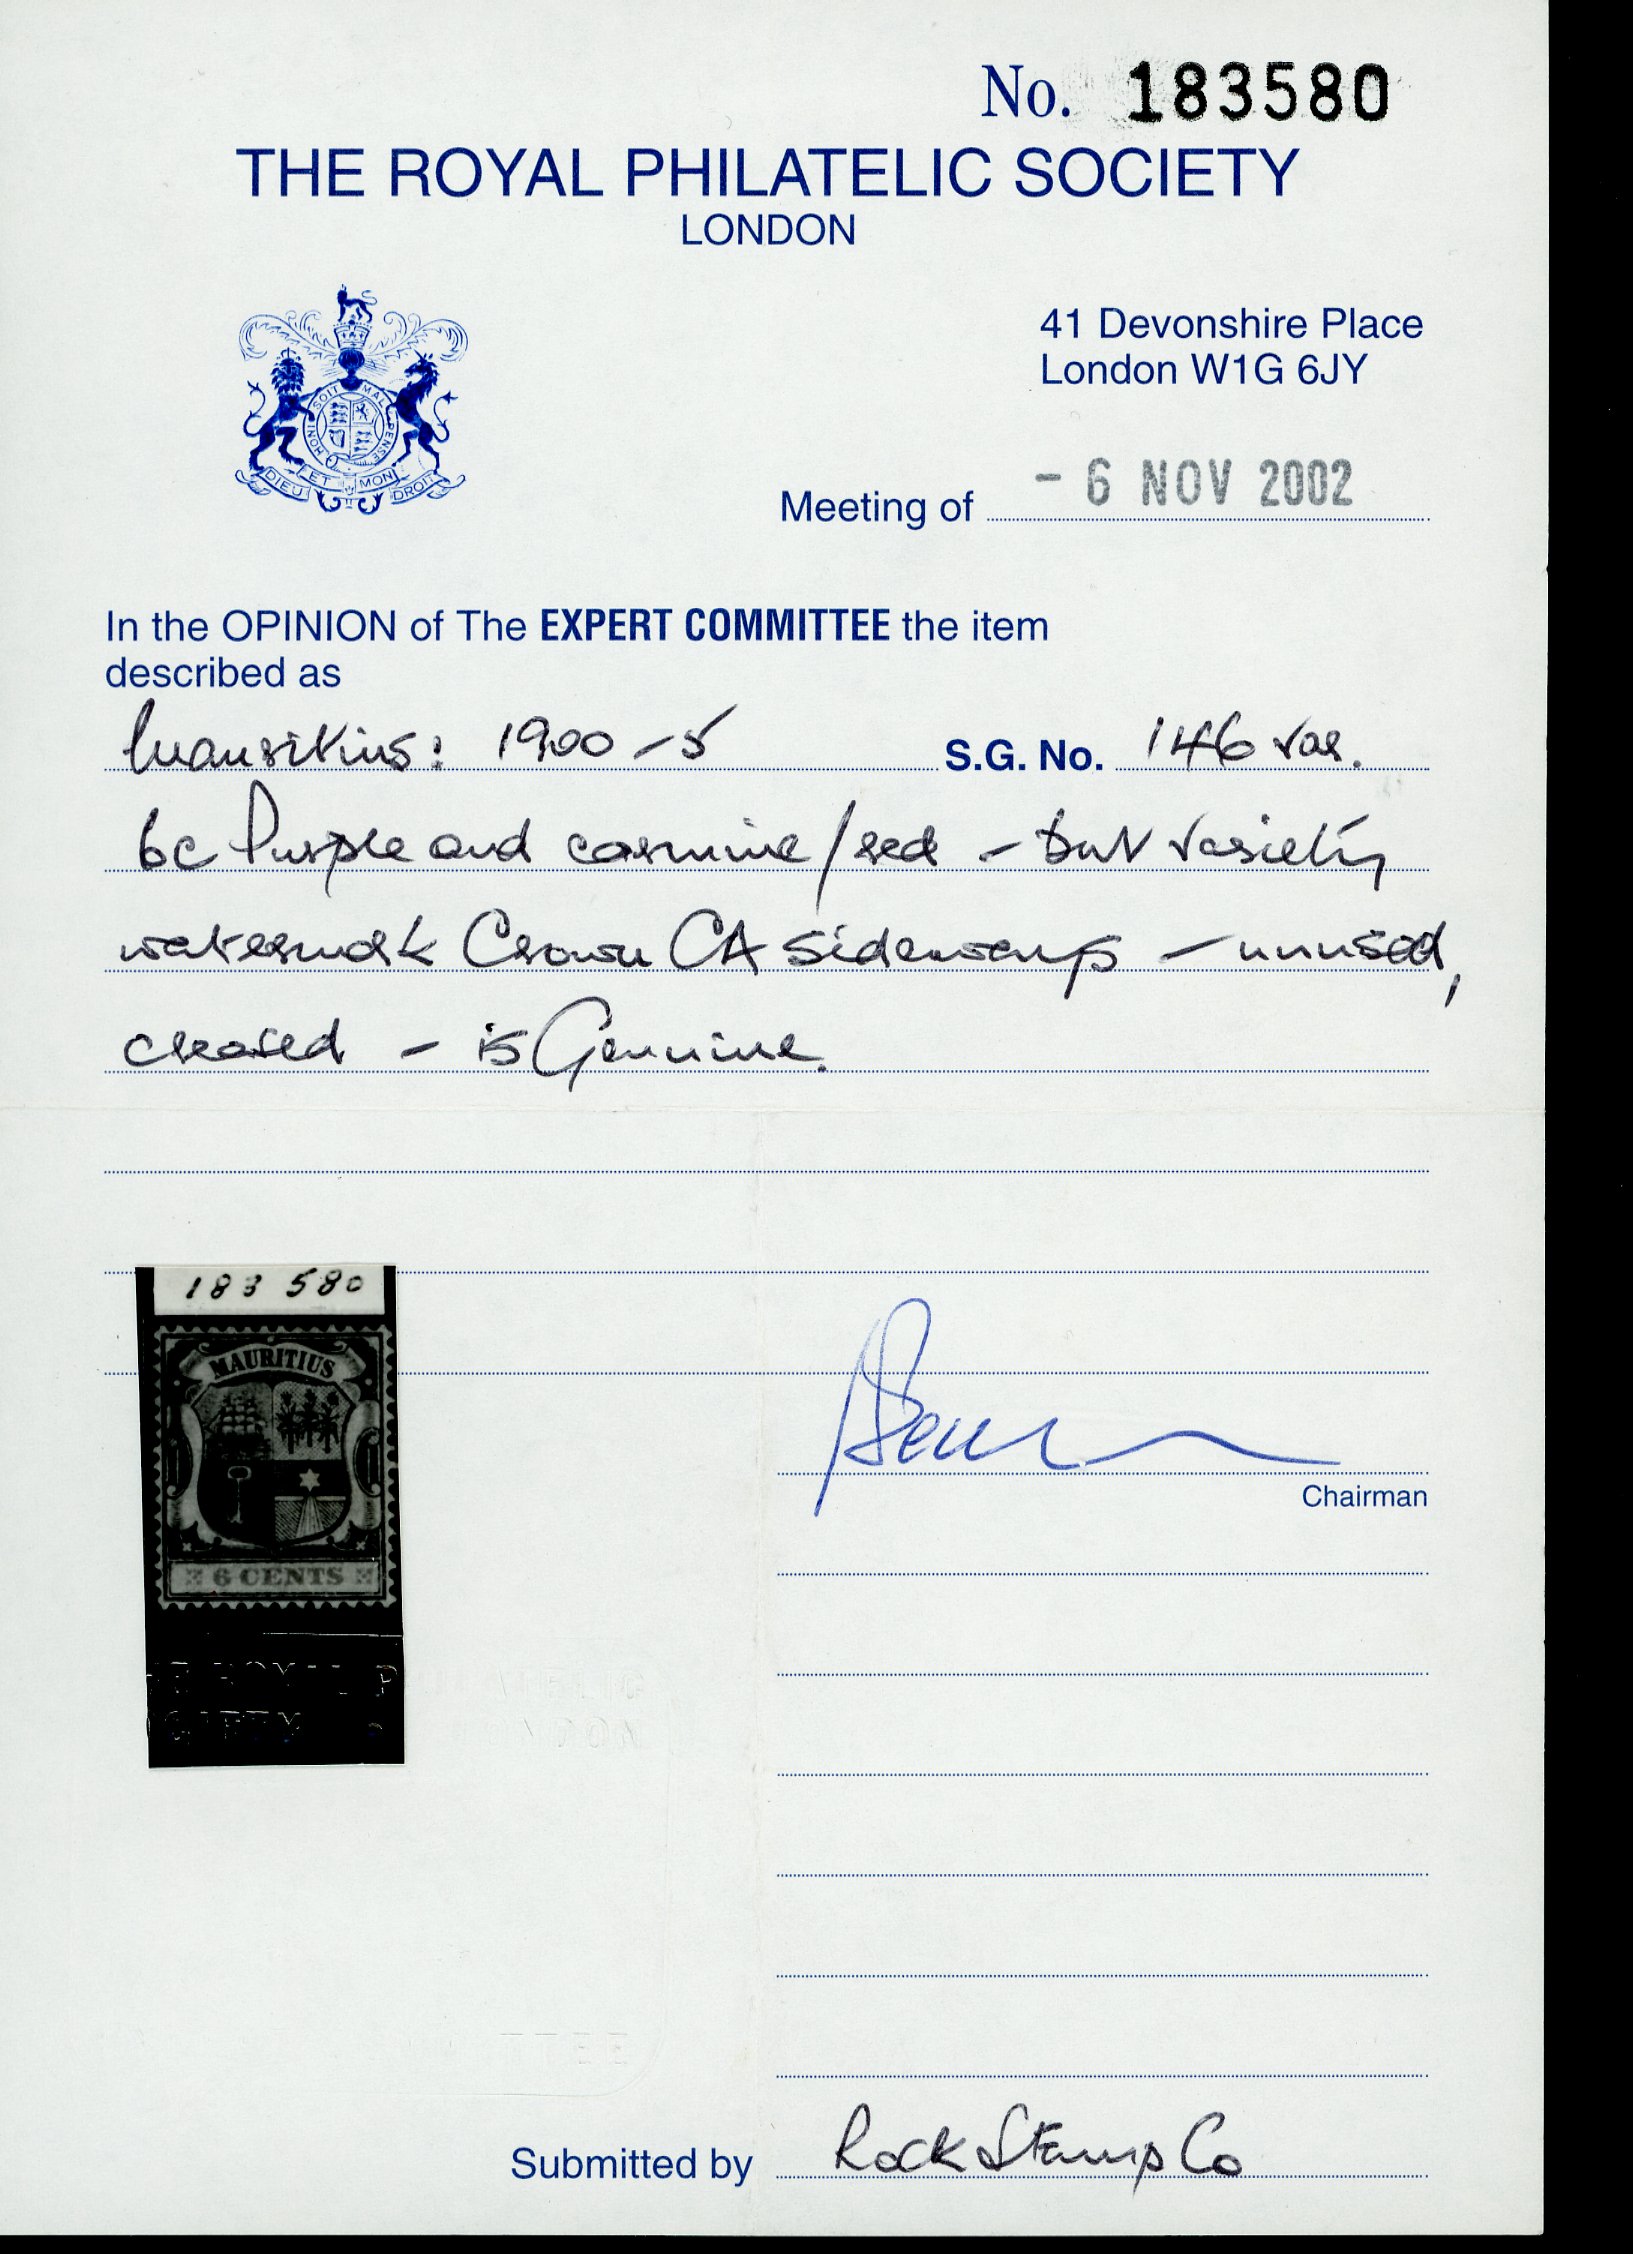 No. 183580
THE ROYAL PHILATELIC SOCIETY
LONDON
41 Devonshire Place
London W1G 6JY
HONI SOIT MAL PENSE
DIEU ET MON DROIT
Meeting of - 6 NOV 2002
In the OPINION of The EXPERT COMMITTEE the item
described as
Mauritius: 1900-5 S.G. No. 146 var.
6c Purple and carmine/red - but variety
watermark Crown CA sideways - unused,
creased - is Genuine.
183 580
MAURITIUS
6 CENTS
Chairman
Submitted by Rock Stamp Co